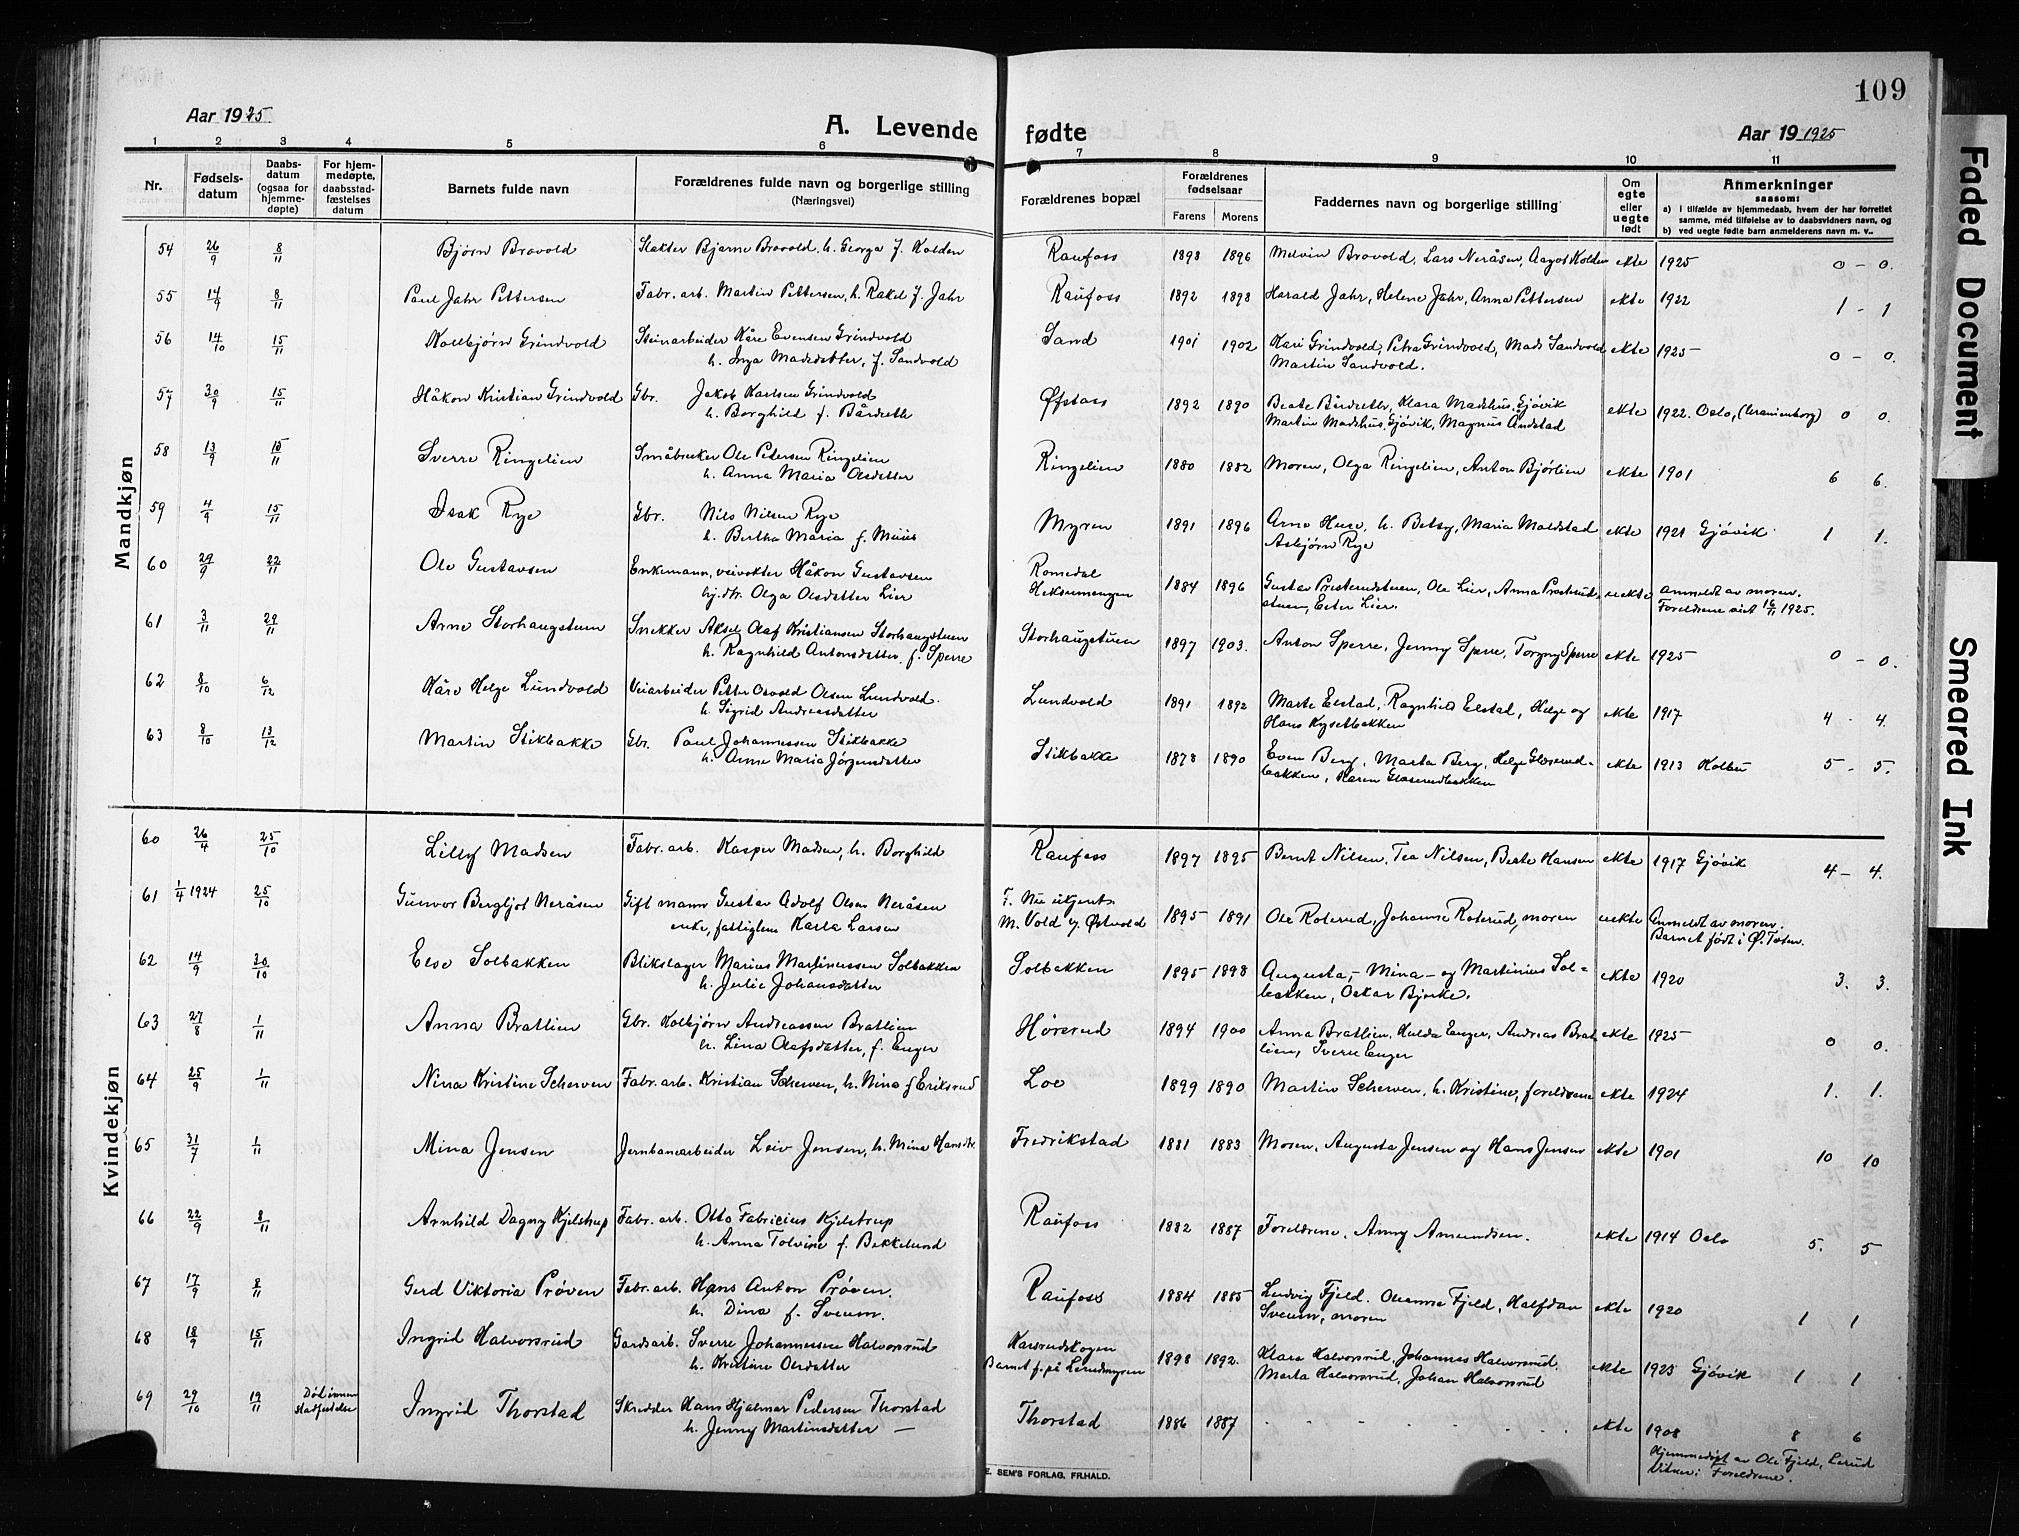 109
Aar 1925
A. Levende fødte
Aar 19 1925
1 2 3 4 5 6 7 8 9 10 11
Nr.
Fødsels-datum
Daabs-datum (ogsaa for hjemme-døpte)
For hjem-medøpte, daabsstad-fæstelses datum
Barnets fulde navn
Forældrenes fulde navn og borgerlige stilling (Næringsvei)
Forældrenes bopæl
Forældrenes fødselsaar
Farens Morens
Faddernes navn og borgerlige stilling
Om egte eller uegte født
Anmerkninger saasom:
a) i tilfælde av hjemmedaab, hvem der har forrettet samme, med tilføielse av to daabsvidners navn, og
b) ved uegte fødte barn anmelderens navn m. v..
Mandkjøn
54 26/9 8/11 Bjørn Bravold Slakter Bjarne Bravold, h. Georga f. Kolden Raufoss 1898 1896 Melvin Bravold, Lars Neråsen, Aagot Kolden ekte 1925 0 - 0.
55 14/9 8/11 Paul Jahr Pettersen Fabr. arb. Martin Pettersen, h. Rakel f. Jahr Raufoss 1892 1898 Harald Jahr, Helene Jahr, Anna Pettersen ekte 1922 1 - 1
56 14/10 15/11 Kolbjørn Grindvold Steinarbeider Kåre Evensen Grindvold Sand 1901 1902 Kari Grindvold, Petra Grindvold, Mads Sandvold ekte 1925 0 - 0.
h. Inga Madsdatter, f. Sandvold Martin Sandvold.
57 30/9 15/11 Håkon Kristian Grindvold Gbr. Jakob Karlsen Grindvold Øfstaas 1892 1890 Beate Bårdseth, Klara Madshus, Gjøvik ekte 1922. Oslo, (Uranienborg) 0 0.
h. Borghild f. Bårdseth Martin Madshus, Gjøvik, Magnus Andstad
58 13/9 15/11 Sverre Ringelien Småbruker Ole Petersen Ringelien Ringelien 1880 1882 Moren, Olga Ringelien, Anton Bjørlien ekte 1901 6 6.
h. Anna Maria Olsdatter
59 4/9 15/11 Isak Rye Gbr. Nils Nilsen Rye Myren 1891 1896 Arne Huse, h. Betsy, Maria Moldstad ekte 1921 Gjøvik 1 1.
h. Bertha Maria f. Muus Asbjørn Rye
60 29/9 22/11 Ole Gustavsen Enkemann, veivokter Håkon Gustavsen Romedal 1884 1896 Gustav Presterudstuen, Ole Lier, Anna Presterud- uekte anmeldt av moren.
hj. dtr. Olga Olsdatter Lier Heksumengen stuen, Ester Lier. Foreldrene viet 16/11 1925.
61 3/11 29/11 Arne Storhaugstuen Snekker Aksel Olaf Kristiansen Storhaugstuen Storhaugstuen 1897 1903. Anton Sperre, Jenny Sperre, Torgny Sperre ekte 1925 0 - 0.
h. Ragnhild Antonsdatter f. Sperre
62 8/10 6/12 Kåre Helge Lundvold Veiarbeider Petter Osvald Olsen Lundvold. Lundvold 1891 1892 Marte Elstad, Ragnhild Elstad, Helge og ekte 1917 4 - 4.
h. Sigrid Andreasdatter Hans Kysetbakken
63 8/10 13/12 Martin Stikbakke Gbr. Paul Johannessen Stikbakke Stikbakke 1878 1890 Even Berg, Marta Berg, Helge Glæserud- ekte 1913 Kolbu 5 - 5.
h. Anne Maria Jørgensdatter bakken, Karen Glæserudbakken
Kvindekjøn
60 26/4 25/10 Lilly Madsen Fabr. arb. Kasper Madsen, h. Borghild Raufoss 1897 1895 Bernt Nilsen, Tea Nilsen, Beate Hansen ekte 1917 Gjøvik 4 - 4.
61 1/4 1924 25/10 Gunvor Bergljot Neråsen Gift mann Gustav Adolf Olsen Neråsen F. 1895 1891 Ole Roterud, Johanne Roterud, moren uekte Anmeldt av moren.
enke, fattiglem Karla Larsen M. Vold Østvold Barnet født i Ø. Toten.
62 14/9 30/10 Else Solbakken Blikslager Marius Martinussen Solbakken Solbakken 1895 1898 Augusta, - Mina - og Martinius Sol- ekte 1920 3. 3.
h. Julie Johansdatter bakken, Oskar Bjerke.
63 27/8 1/11 Anna Bratlien Gbr. Kolbjørn Andreassen Bratlien Hørsrud 1894 1900 Anna Bratlien, Hulda Enger, Andreas Brat- ekte 1925 0 0.
h. Lina Olafsdatter, f. Enger lien, Sverre Enger
64 25/9 1/11 Nina Kristine Scherven Fabr. arb. Kristian Scherven, h. Nina f. Eriksrud Loe 1899 1890 Martin Scherven, h. Kristine, foreldrene ekte 1924 1. 1.
65 31/7 1/11 Mina Jensen Jernbanearbeider Leiv Jensen, h. Mina Hansdtr. Fredrikstad 1881 1883 Moren, Augusta Jensen og Hans Jensen ekte 1901 10 10
66 22/9 8/11 Arnhild Dagny Kjelstrup Fabr. arb. Otto Fabricius Kjelstrup Raufoss 1882 1887 Foreldrene, Anny Amundsen. ekte 1914 Oslo 5. 5
h. Anna Tolvine f. Bekkelund
67 17/9 8/11 Gerd Viktoria Prøven Fabr. arb. Hans Anton Prøven. Raufoss 1884 1885 Ludvig Fjeld. Oleanna Fjeld, Halfdan ekte 1920 1 1
h. Dina f. Sveum. Sveum, moren
68 18/9 15/11 Ingrid Halvorsrud Gardsarb. Sverre Johannessen Halvorsrud Karsrudskogen 1898 1892. Klara Halvorsrud, Johannes Halvorsrud. ekte 1925 Gjøvik 1 1
h. Kristine Olsdatter Barnet f. på Lundmyren Marta Halvorsrud, Johan Halvorsrud
69 29/10 19/11 Død innen stadfestelse Ingrid Thorstad Skredder Hans Hjalmar Pedersen Thorstad Thorstad 1886 1887 ekte 1908 8 6
h. Jenny Martinsdatter — Hjemmedøpt av Ole Fjeld, Lerud
Vitner: Foreldrene.
E. SEM'S FORLAG, FR.HALD.
Faded Document
Smeared Ink